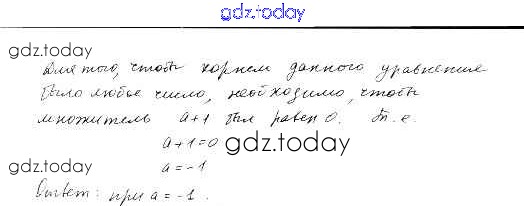 gdz.today
gdz.today
Для того, чтобы корнем данного уравнения
было любое число, необходимо, чтобы
множитель a+1 был равен 0. Т.е.
a+1=0
gdz.today
a=-1
gdz.today
Ответ: при a=-1.